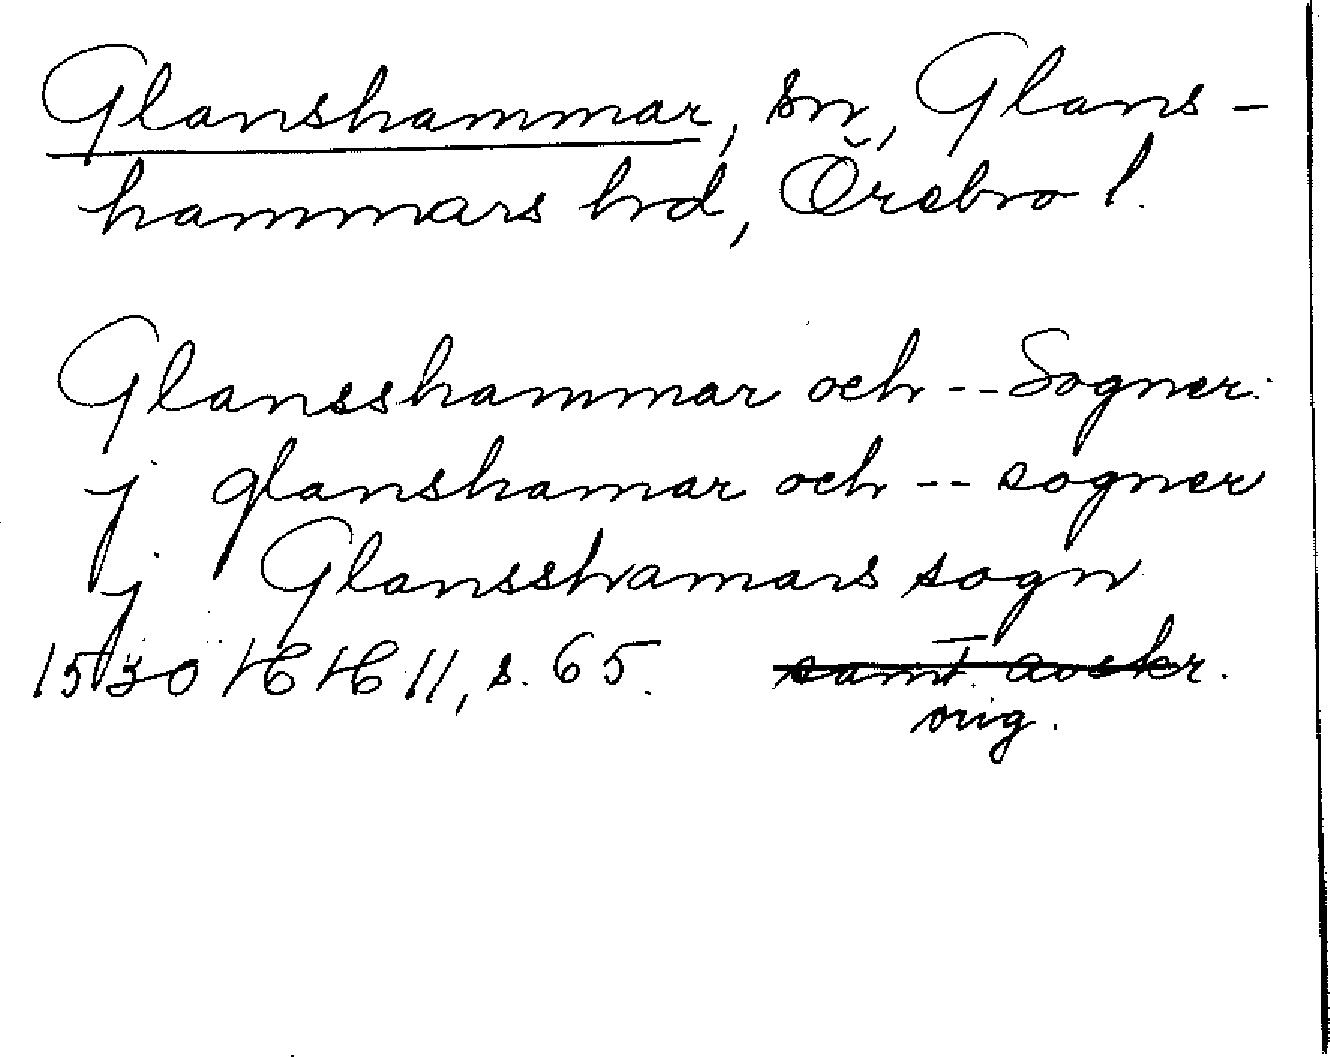 Glanshammar, sn, Glans-
hammars hd, Örebro l.
Glansshammar och -- Sogner.
j glanshamar och -- sogner
j Glansshamars sogn
1530 HH 11, s. 65. samt. avskr.
orig.